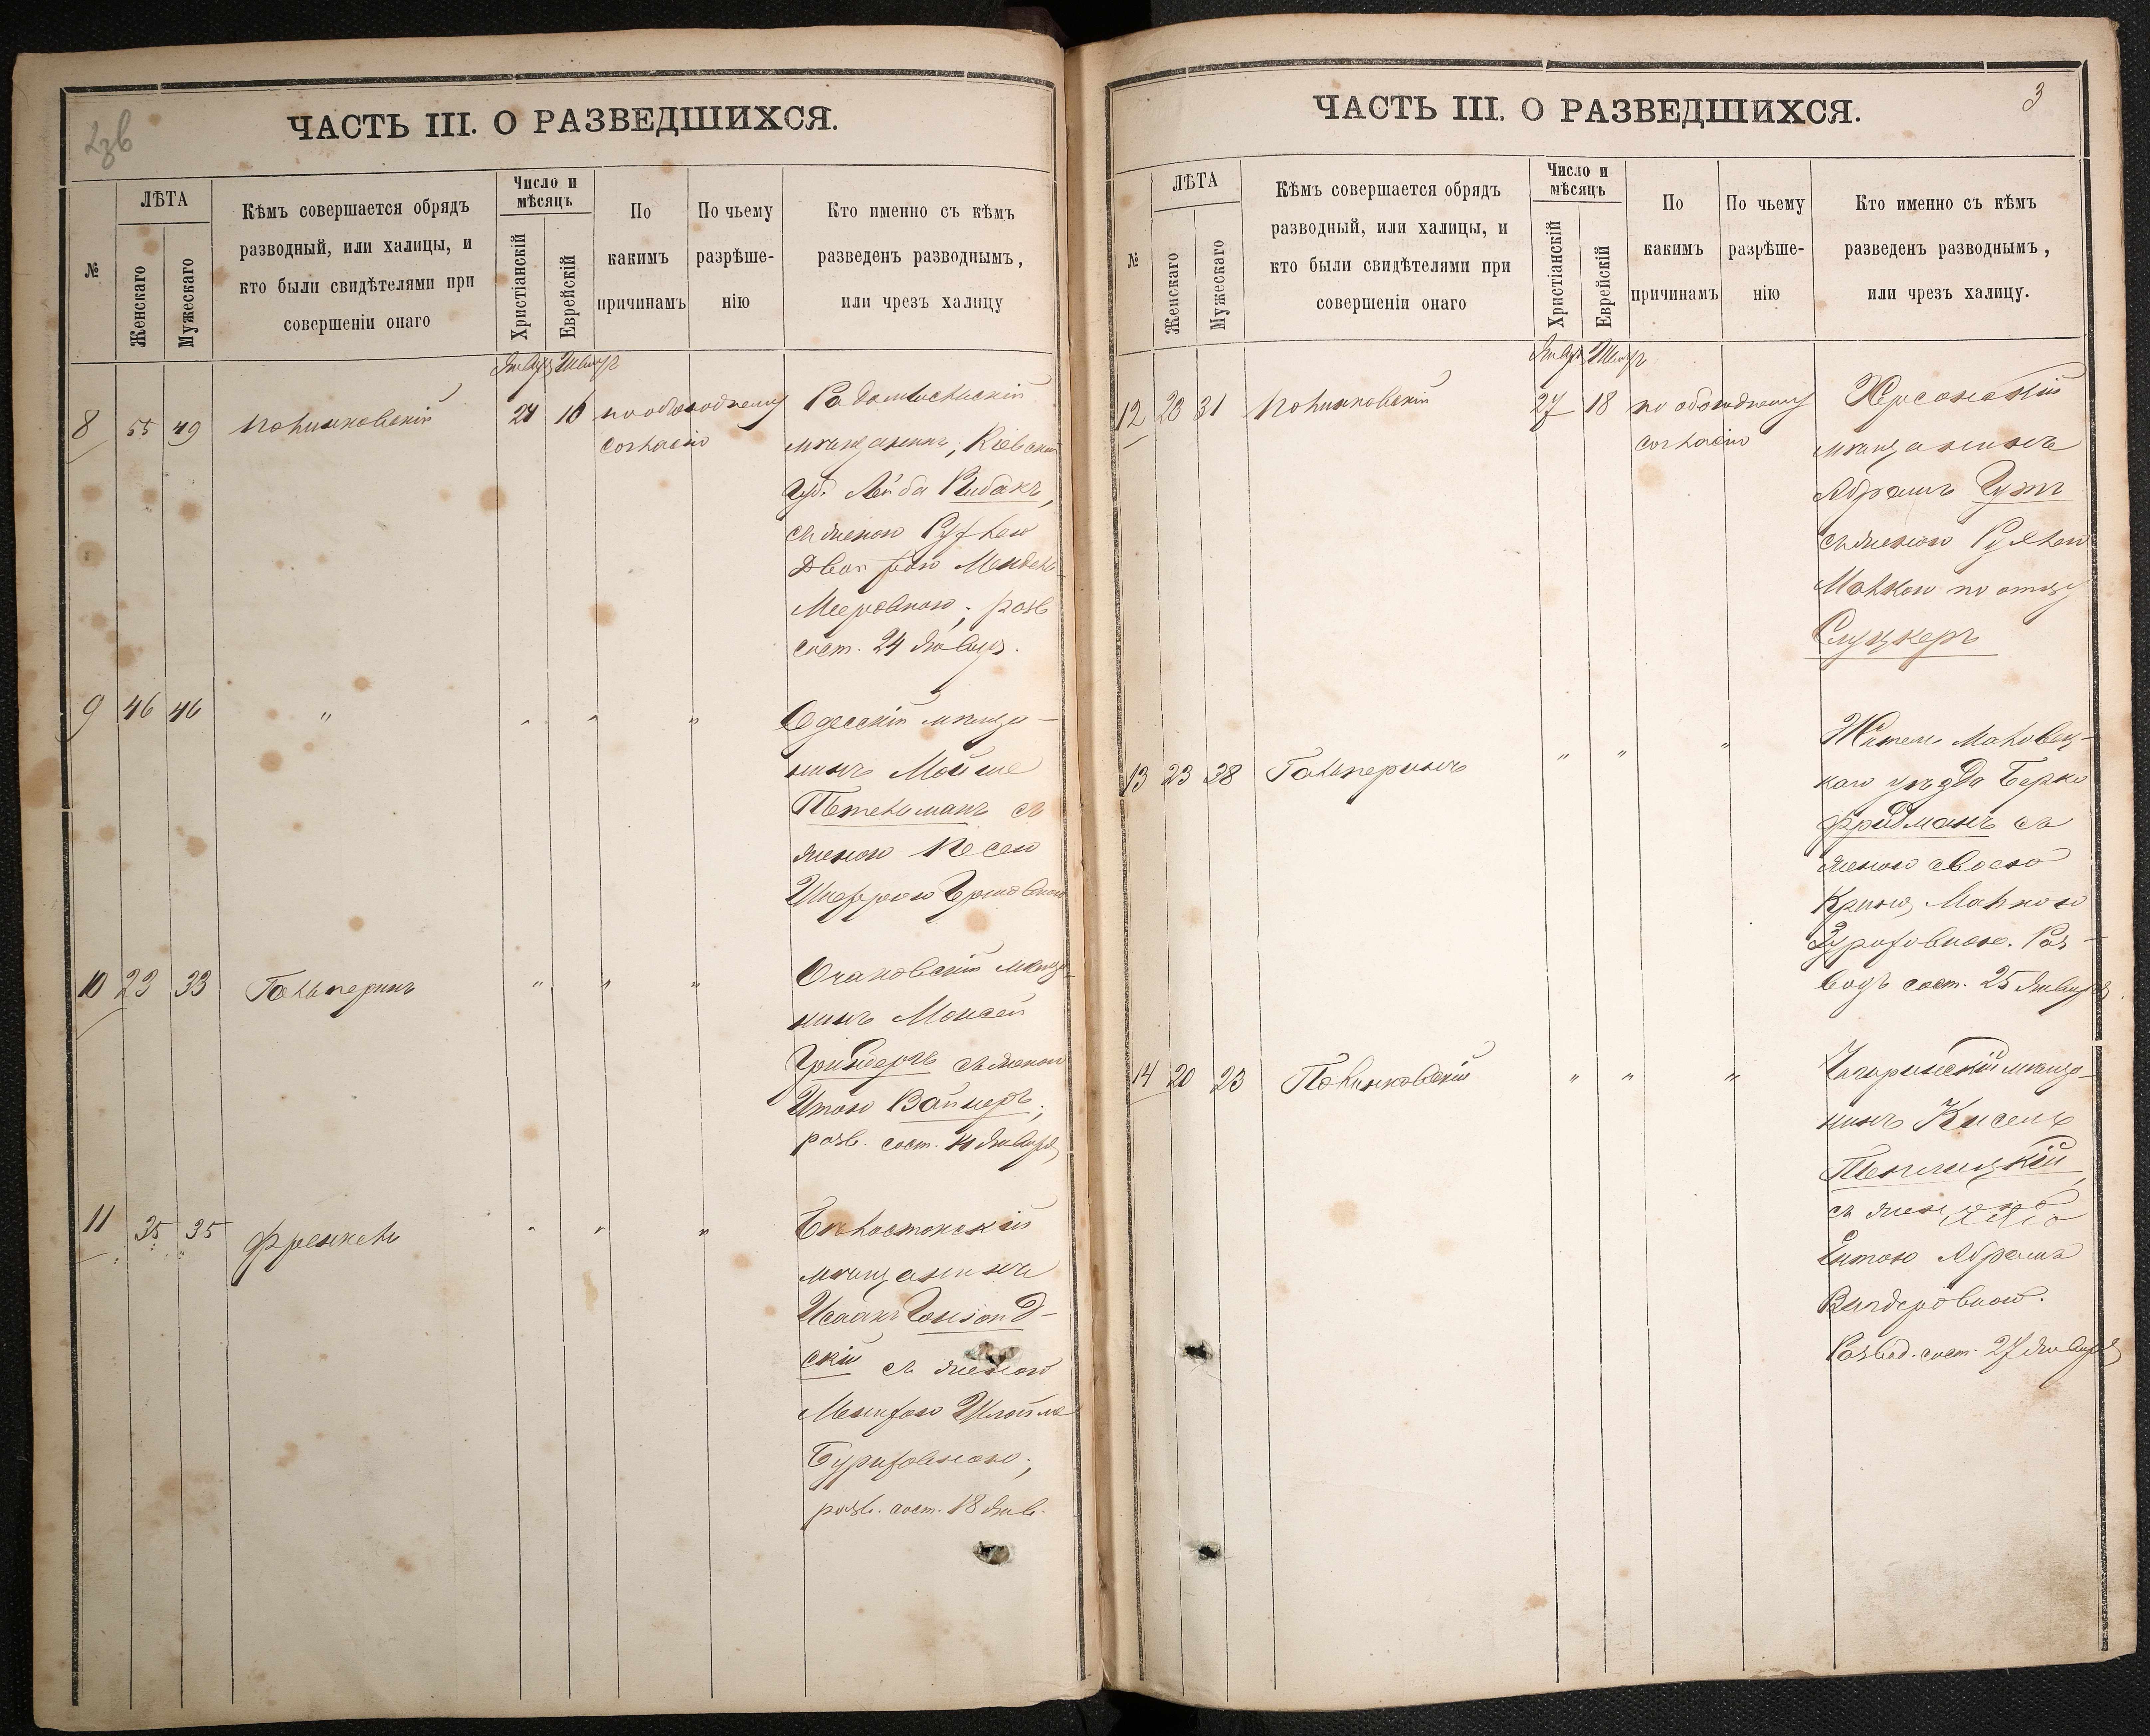 ЧАСТЬ III. О РАЗВЕДШИХСЯ.
№
ЛѢТА
Женскаго
Мужескаго
Кѣмъ совершается обрядъ
разводный, или халицы, и
кто были свидѣтелями при
совершеніи онаго
Число и
мѣсяцъ
Христіанскій
Еврейскій
По
какимъ
причинамъ
По чьему
разрѣше-
нію
Кто именно съ кѣмъ
разведенъ разводнымъ,
или чрезъ халицу
8 55 49 Полинковскій 24 16 по обоюдному
согласію
Радомысльскій
мѣщанинъ, Кіевской
Губ. Лейба Рибакъ,
съ женою Рухлею
Двойрою Мендель-
Мееровною; разв
сост. 24 Января.
9 46 46 " " " "
Одесскій мѣща-
нинъ Мойше
Петельманъ съ
женою Песею
Шифрою
10 23 33 Гальперинъ " " "
Очаковскій мѣща-
нинъ Моисей
съ женою
Итою Вайнеръ;
разв. сост. Января
11 35 35 Френкель " " "
Бѣлостокскій
мѣщанинъ
Исаакъ Гоніонд-
скій съ женою
Менихою Шлойма
Буриховною;
разв. сост. 18 Янв.
ЧАСТЬ III. О РАЗВЕДШИХСЯ.
3
№
ЛѢТА
Женскаго
Мужескаго
Кѣмъ совершается обрядъ
разводный, или халицы, и
кто были свидѣтелями при
совершеніи онаго
Число и
мѣсяцъ
Христіанскій
Еврейскій
По
какимъ
причинамъ
По чьему
разрѣше-
нію
Кто именно съ кѣмъ
разведенъ разводнымъ,
или чрезъ халицу.
12 28 31 Полинковскій 27 18 по обоюдному
согласію
Херсонскій
мѣщанинъ
Абрамъ Гутъ
съ женою Рухлею
Малкою по отцу
Слуцкеръ
13 23 38 Гальперинъ " " "
Житель
каго уѣзда Берко
Фридманъ съ
женою своею
Крину Малкою
Раз-
водъ сост. 25 Января
14 20 23 Полинковскій " " "
Чигиринскій мѣща-
нинъ Кисель
съ женою
Ентою Абрама
Развод. сост. 27 Января